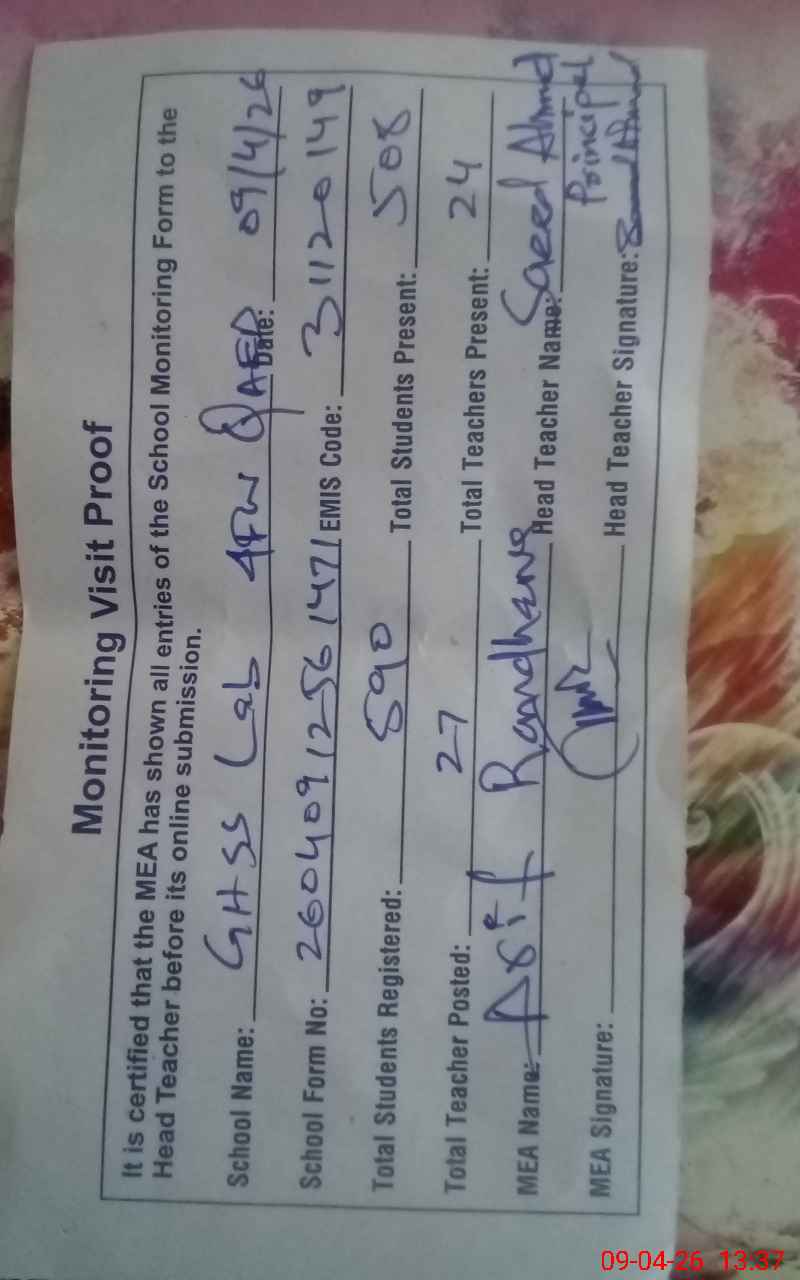 Monitoring Visit Proof
It is certified that the MEA has shown all entries of the School Monitoring Form to the
Head Teacher before its online submission.
School Name: GHSS Lab 4FW QAED Date: 09/4/26
School Form No: 2604091256147 EMIS Code: 31120149
Total Students Registered: 890 Total Students Present: 508
Total Teacher Posted: 27 Total Teachers Present: 24
MEA Name: Asif Raandhawa Head Teacher Name: Saeed Ahmed
Principal
MEA Signature: Head Teacher Signature: Saeed Ahmed
09-04-26 13:37